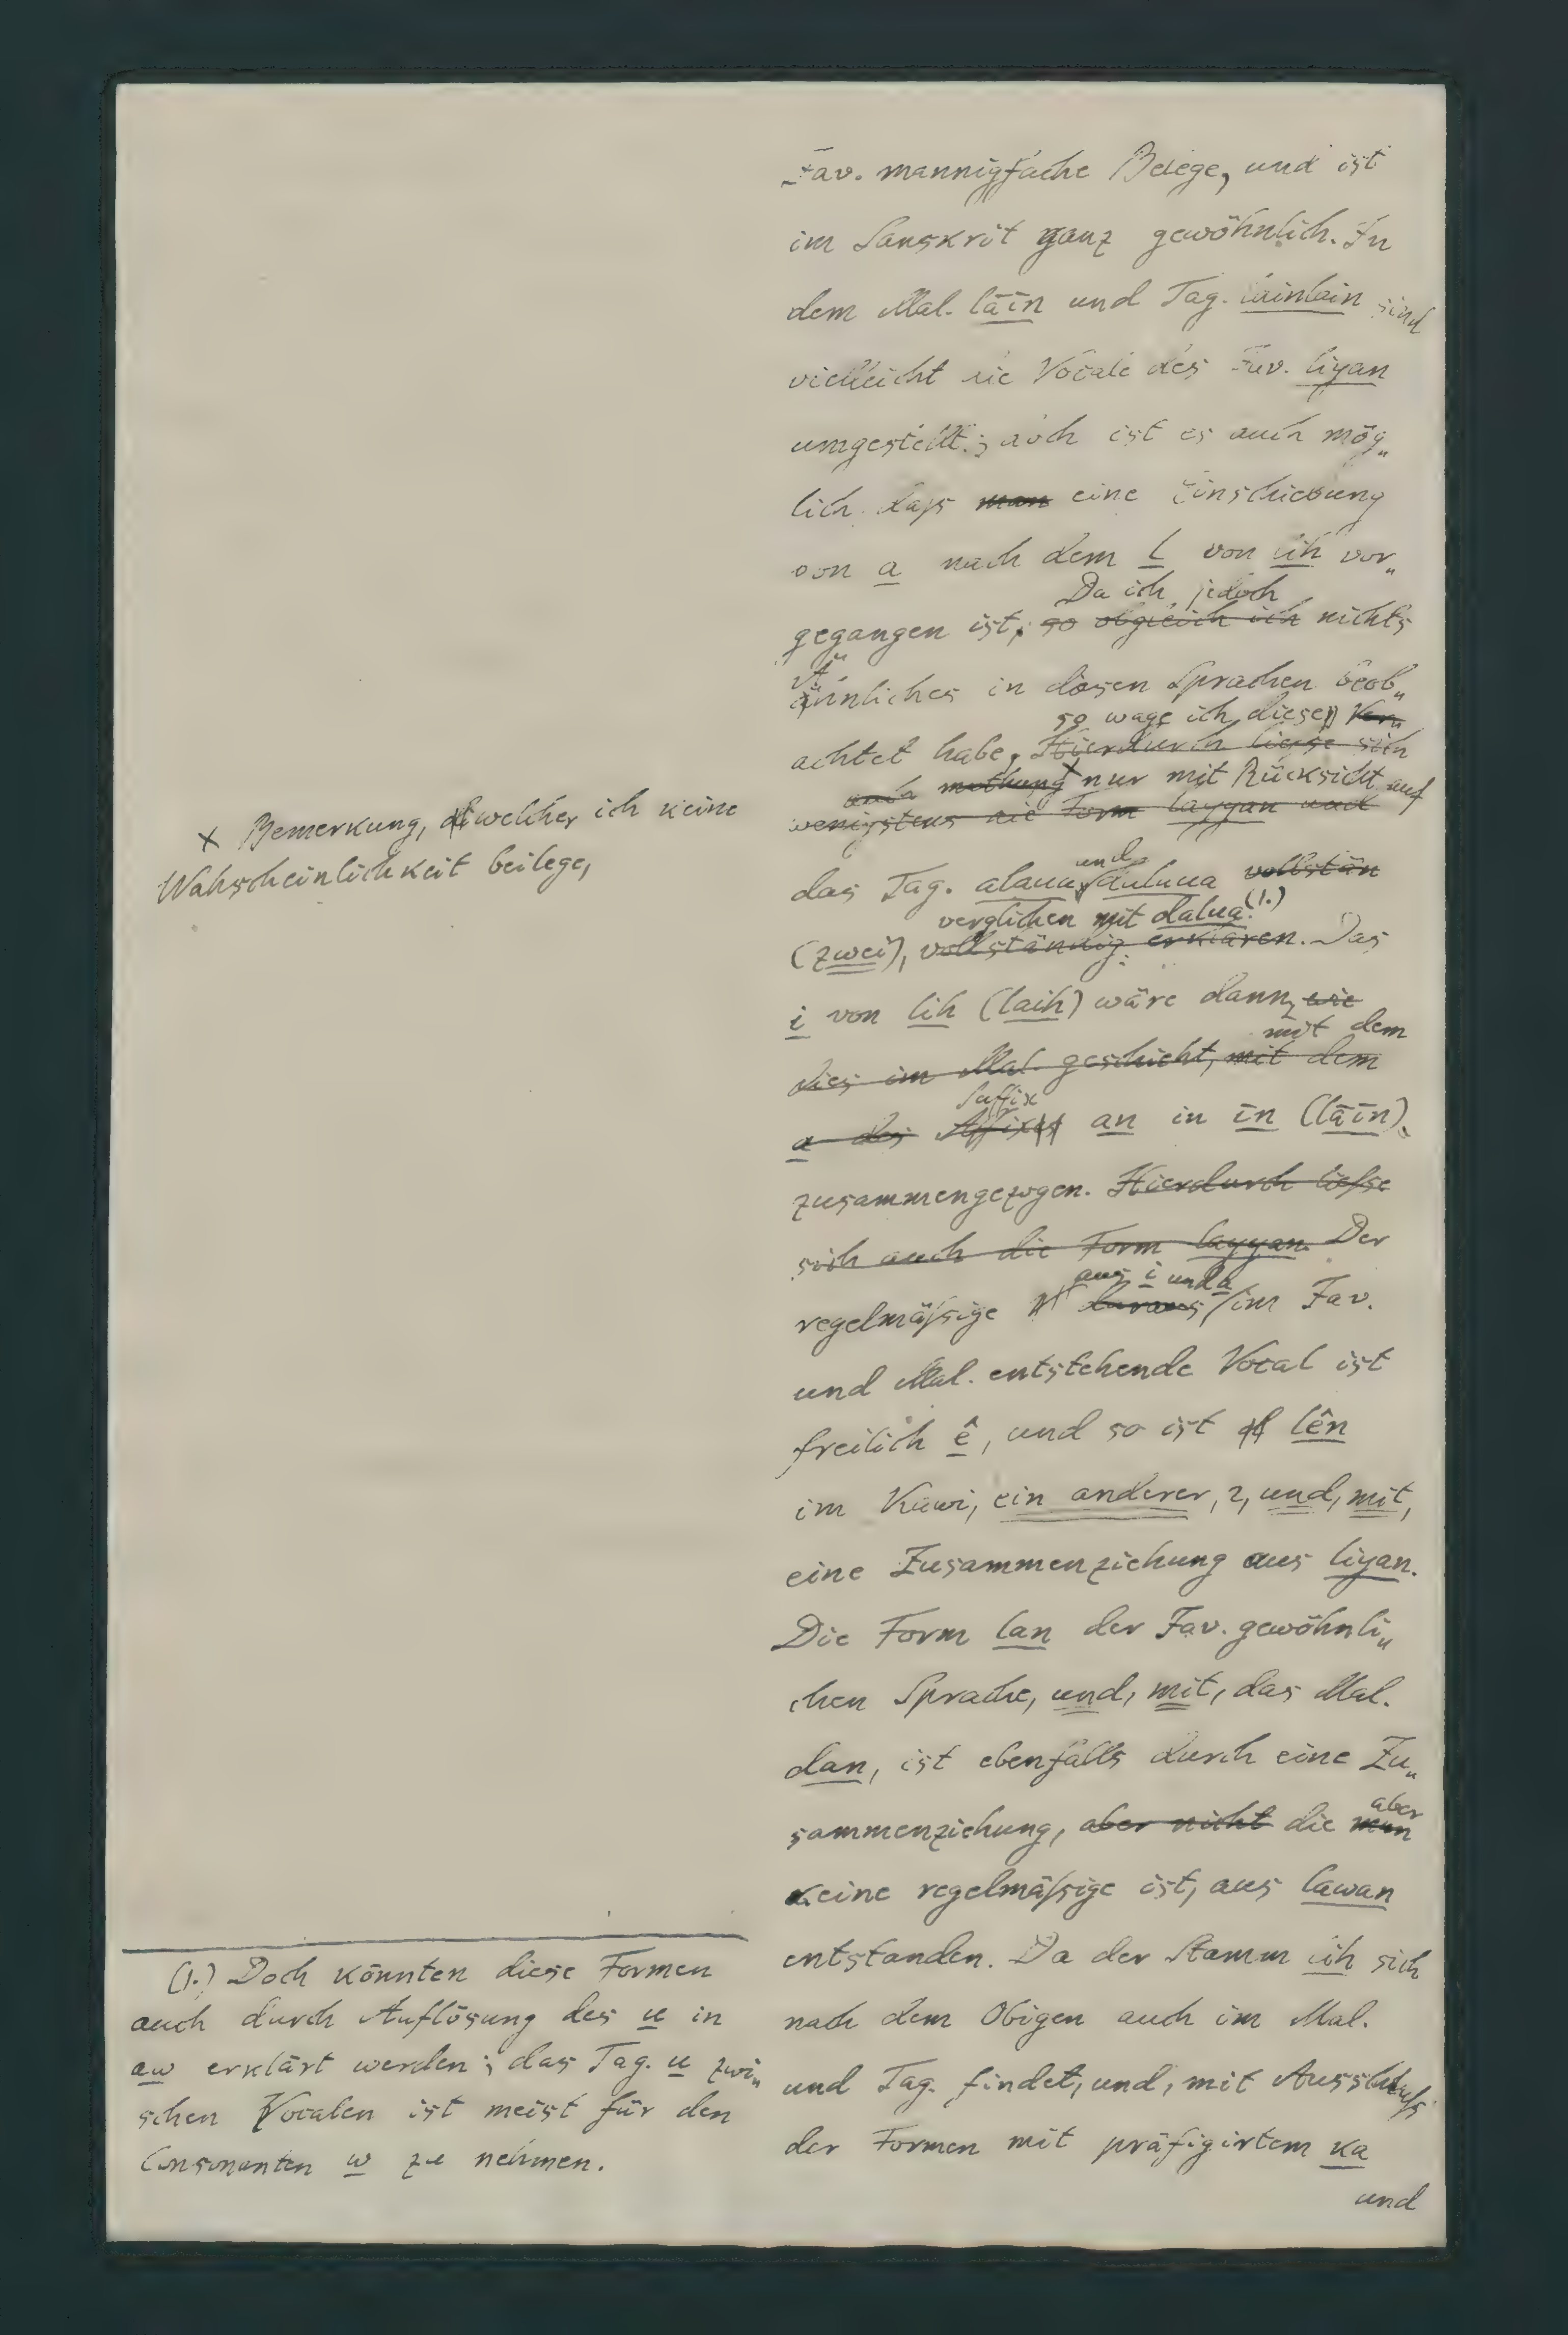 Jav. mannigfache Belege, und ist
im Sanskrit ganz gewöhnlich. In
dem Mal. lāīn und Tag. lainlain sind
vielleicht die Vocale des Jav. liyan
umgestellt; doch ist es auch mög„
lich daſs man eine Einschiebung
von a nach dem l von lih vor„
Da ich jedoch
gegangen ist, so obgleich ich nichts
Ähnliches in diesen Sprachen beob„
so wage ich diese Ver„
achtet habe, Hierdurch liesse sich
auch muthung × nur mit Rücksicht auf
wenigstens die Form layyan und
und
das Tag. alaua daluua vollstän
verglichen mit dalua. (1.)
(zwei), vollständig erklären. Das
i von lih (laih) wäre dann, wie
mit dem
dies im Mal. geschieht, mit dem
Suffix
a des Affixes an in īn (lāīn)
zusammengezogen. Hierdurch lieſse
sich auch die Form layyan. Der
aus i und a
regelmäſsige daraus im Jav.
und Mal. entstehende Vocal ist
freilich ê, und so ist lên
im Kawi, ein anderer, 2, und, mit,
eine Zusammenziehung aus liyan.
Die Form lan der Jav. gewöhnli„
chen Sprache, und, mit, das Mal.
dan, ist ebenfalls durch eine Zu„
aber
sammenziehung, aber nicht die nun
keine regelmäſsige ist, aus lawan
entstanden. Da der Stamm lih sich
nach dem Obigen auch im Mal.
und Tag. findet, und, mit Ausschluſs
der Formen mit präfigirtem ka
und
× Bemerkung, welcher ich keine
Wahscheinlichkeit beilege,
(1.) Doch könnten diese Formen
auch durch Auflösung des u in
aw erklärt werden; das Tag. u zwi„
schen Vocalen ist meist für den
Consonanten w zu nehmen.